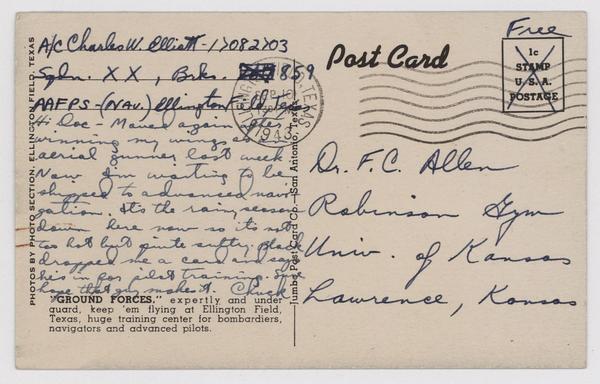 A/C Charles W. Elliott - 17082703
Sqdn. XX, Brks. 1859
AAFPS - (Nav.) Ellington Field, Tex
Hi Doc - Moved again after
winning my wings as
aerial gunner last week.
Now I'm waiting to be
shipped to advanced navi
gation. It's the rainy season
down here now so it's not
too hot but quite sultry. Black
dropped me a card and says
he's in for pilot training. Sure
hope that guy makes it. Chuck
"GROUND FORCES," expertly and under
guard, keep 'em flying at Ellington Field,
Texas, huge training center for bombardiers,
navigators and advanced pilots.
PHOTOS BY PHOTO SECTION, ELLINGTON FIELD, TEXAS
Jumbo Post Card Co.—San Antonio, Texas
Post Card
Free
1c
STAMP
U. S. A.
POSTAGE
TEXAS
1943
Dr. F. C. Allen
Robinson Gym
Univ. of Kansas
Lawrence, Kansas